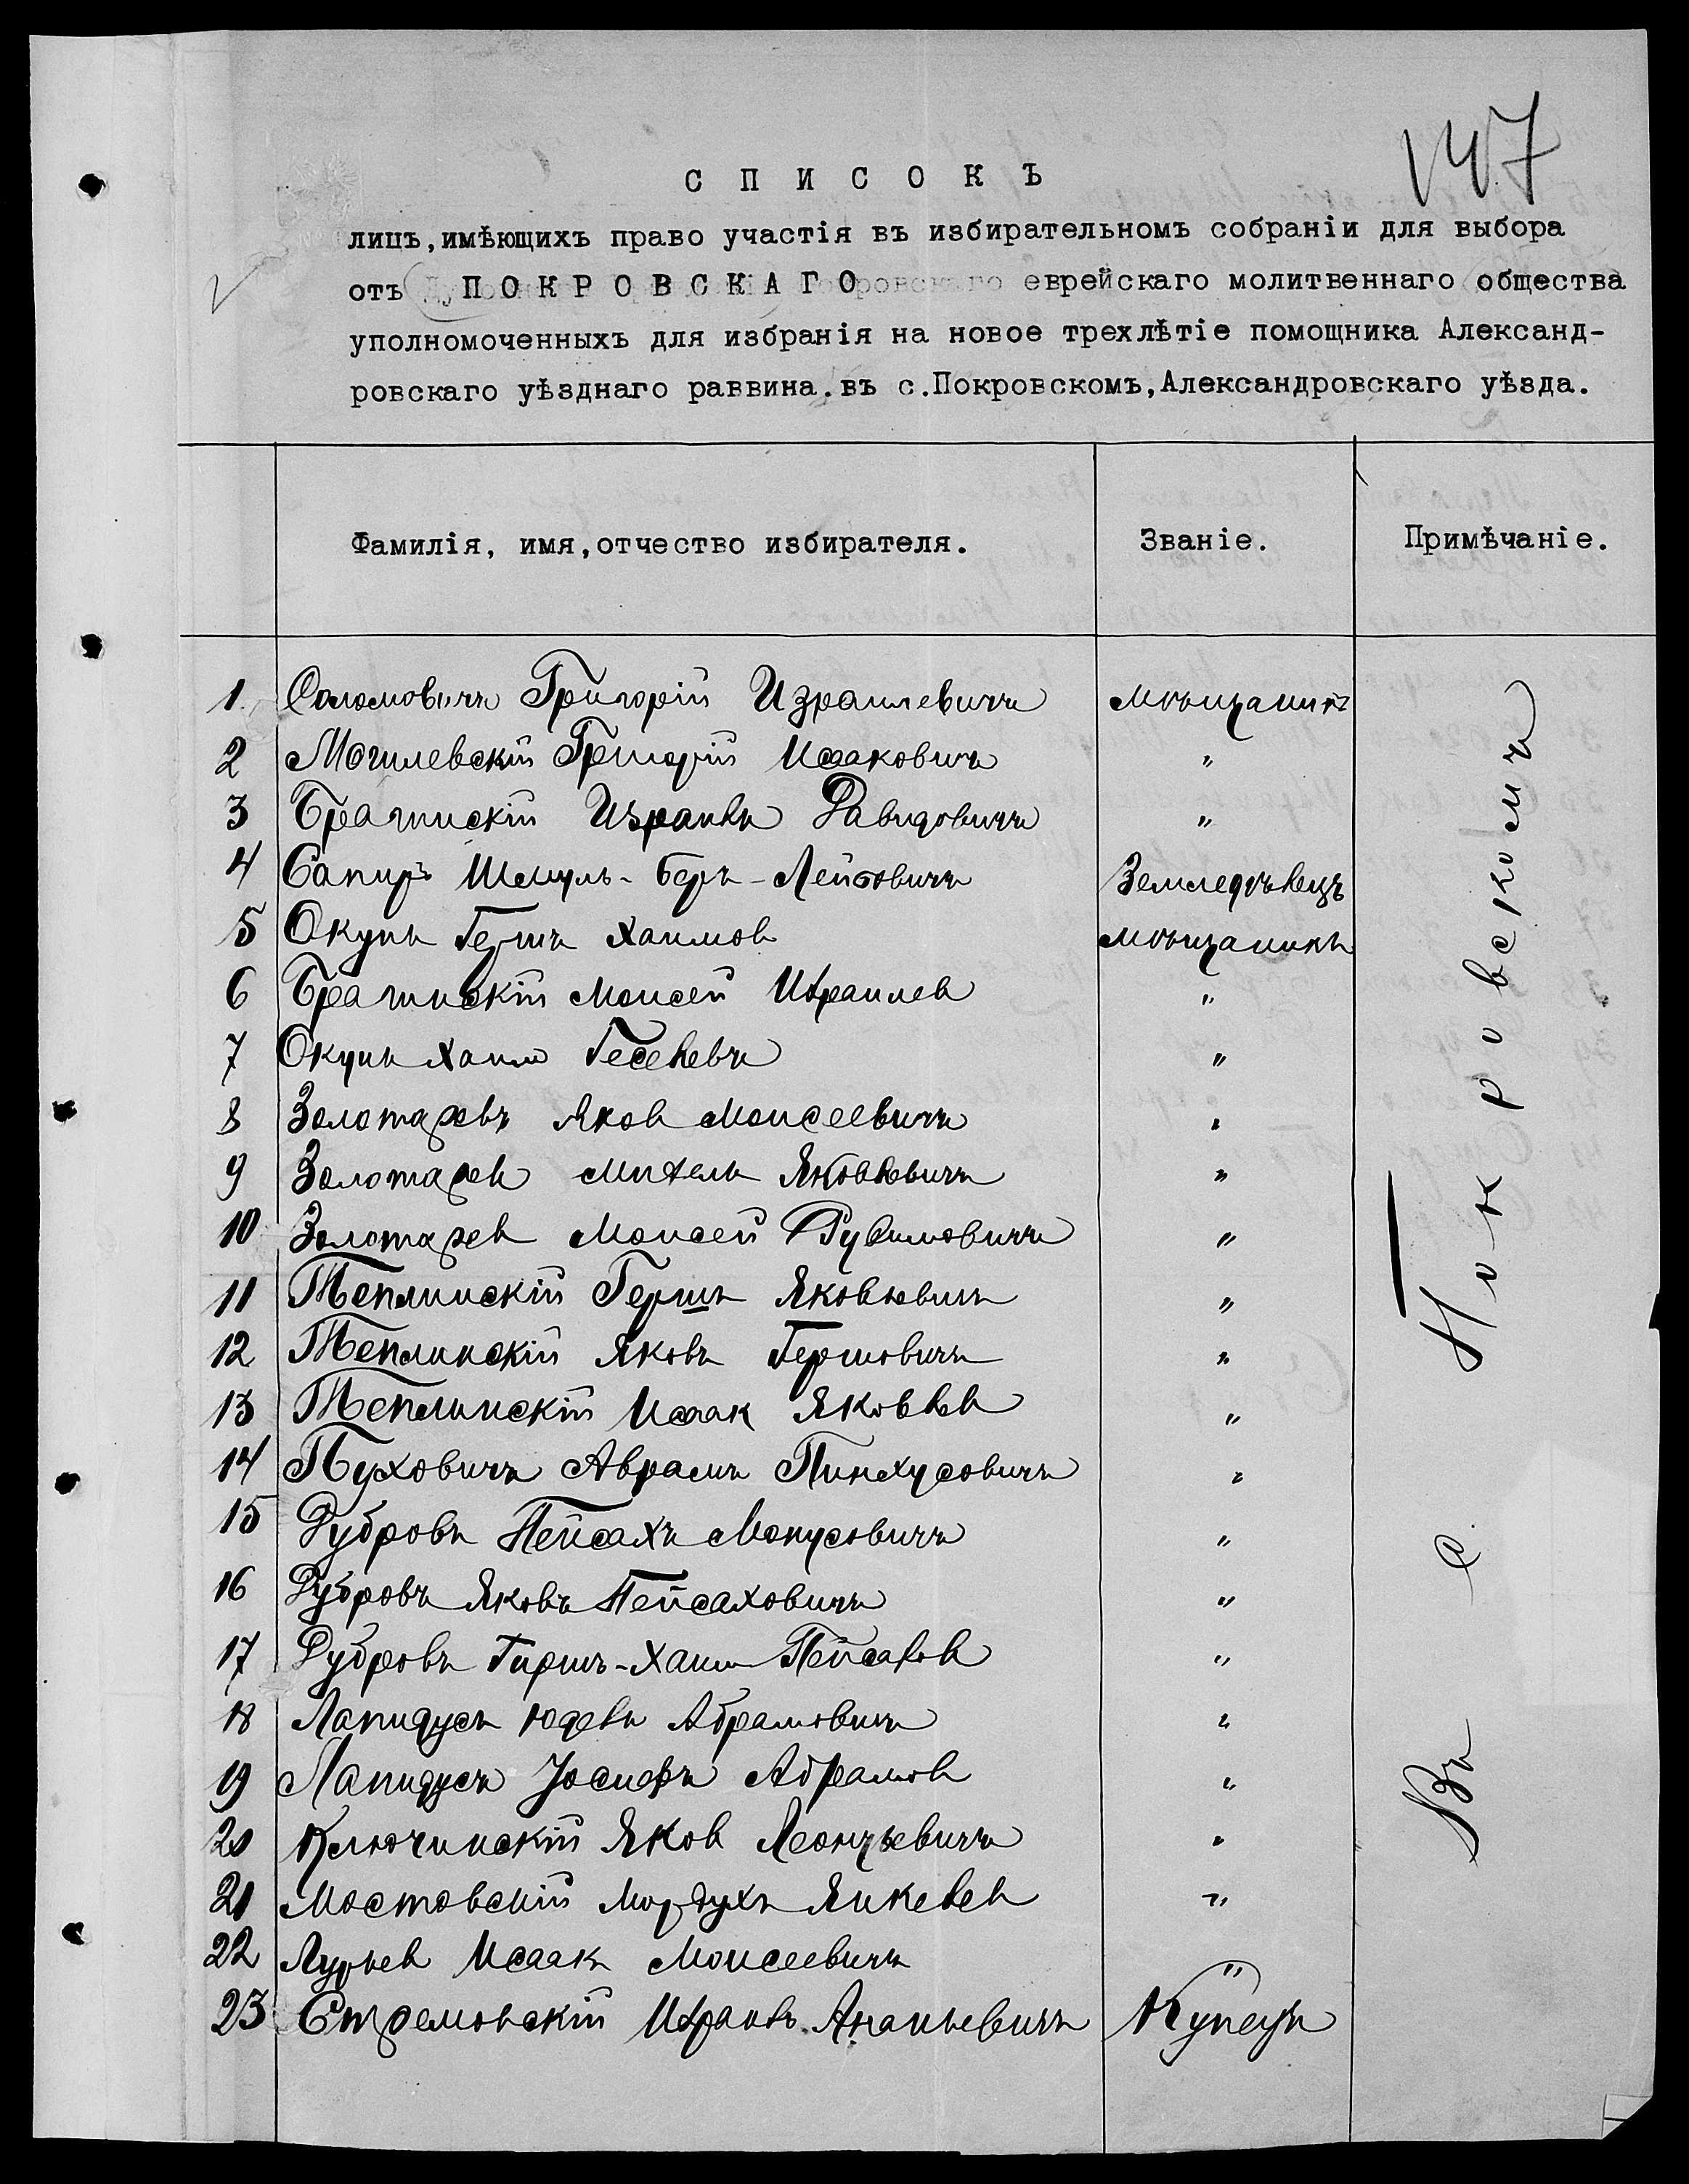 147
СПИСОКЪ
лицъ,имѣющихъ право участія въ избирательномъ собраніи для выбора
отъ ПОКРОВСКАГО еврейскаго молитвеннаго общества
уполномоченныхъ для избранія на новое трехлѣтіе помощника Александ-
ровскаго уѣзднаго раввина.въ с.Покровскомъ,Александровскаго уѣзда.
Фамилія, имя,отчество избирателя. Званіе. Примѣчаніе.
1. Соломовичъ Григорій Израилевичъ мѣщанинъ
2 Могилевскій Григорій Исаковичъ "
3 Брагинскій Израиль Давидовичъ "
4 Сапиръ Шмуль-Беръ-Лейбовичъ Земледѣлецъ
5 Окунь Гершъ Хаимов мѣщанинъ
6 Брагинскій Моисей Израилев "
7 Окунь Хаим "
8 Золотаревъ Яков Моисеевичъ "
9 Золотарев Яковлевичъ "
10 Золотарев Моисей Рувимовичъ "
11 Теплинскій Гершъ Яковлевичъ "
12 Теплинскій Яковъ Гершовичъ "
13 Теплинскій Исаак Яковлев "
14 Пуховичъ Аврамъ Пинхусовичъ "
15 Дубровъ Пейсахъ Монусовичъ "
16 Дубровъ Яковъ Пейсаховичъ "
17 Дубровъ Гиршъ-Хаим Пейсахов "
18 Лапидусъ Юдель Абрамовичъ "
19 Лапидусъ Іосифъ Абрамов "
20 Ключинскій Яков Леонтьевичъ "
21 Мостовскій Мордухъ Янкелев "
22 Лурьев Исаакъ Моисеевичъ "
23 Стремовскій Израиль Ананьевичъ Купецъ
Въ с. Покровскомъ